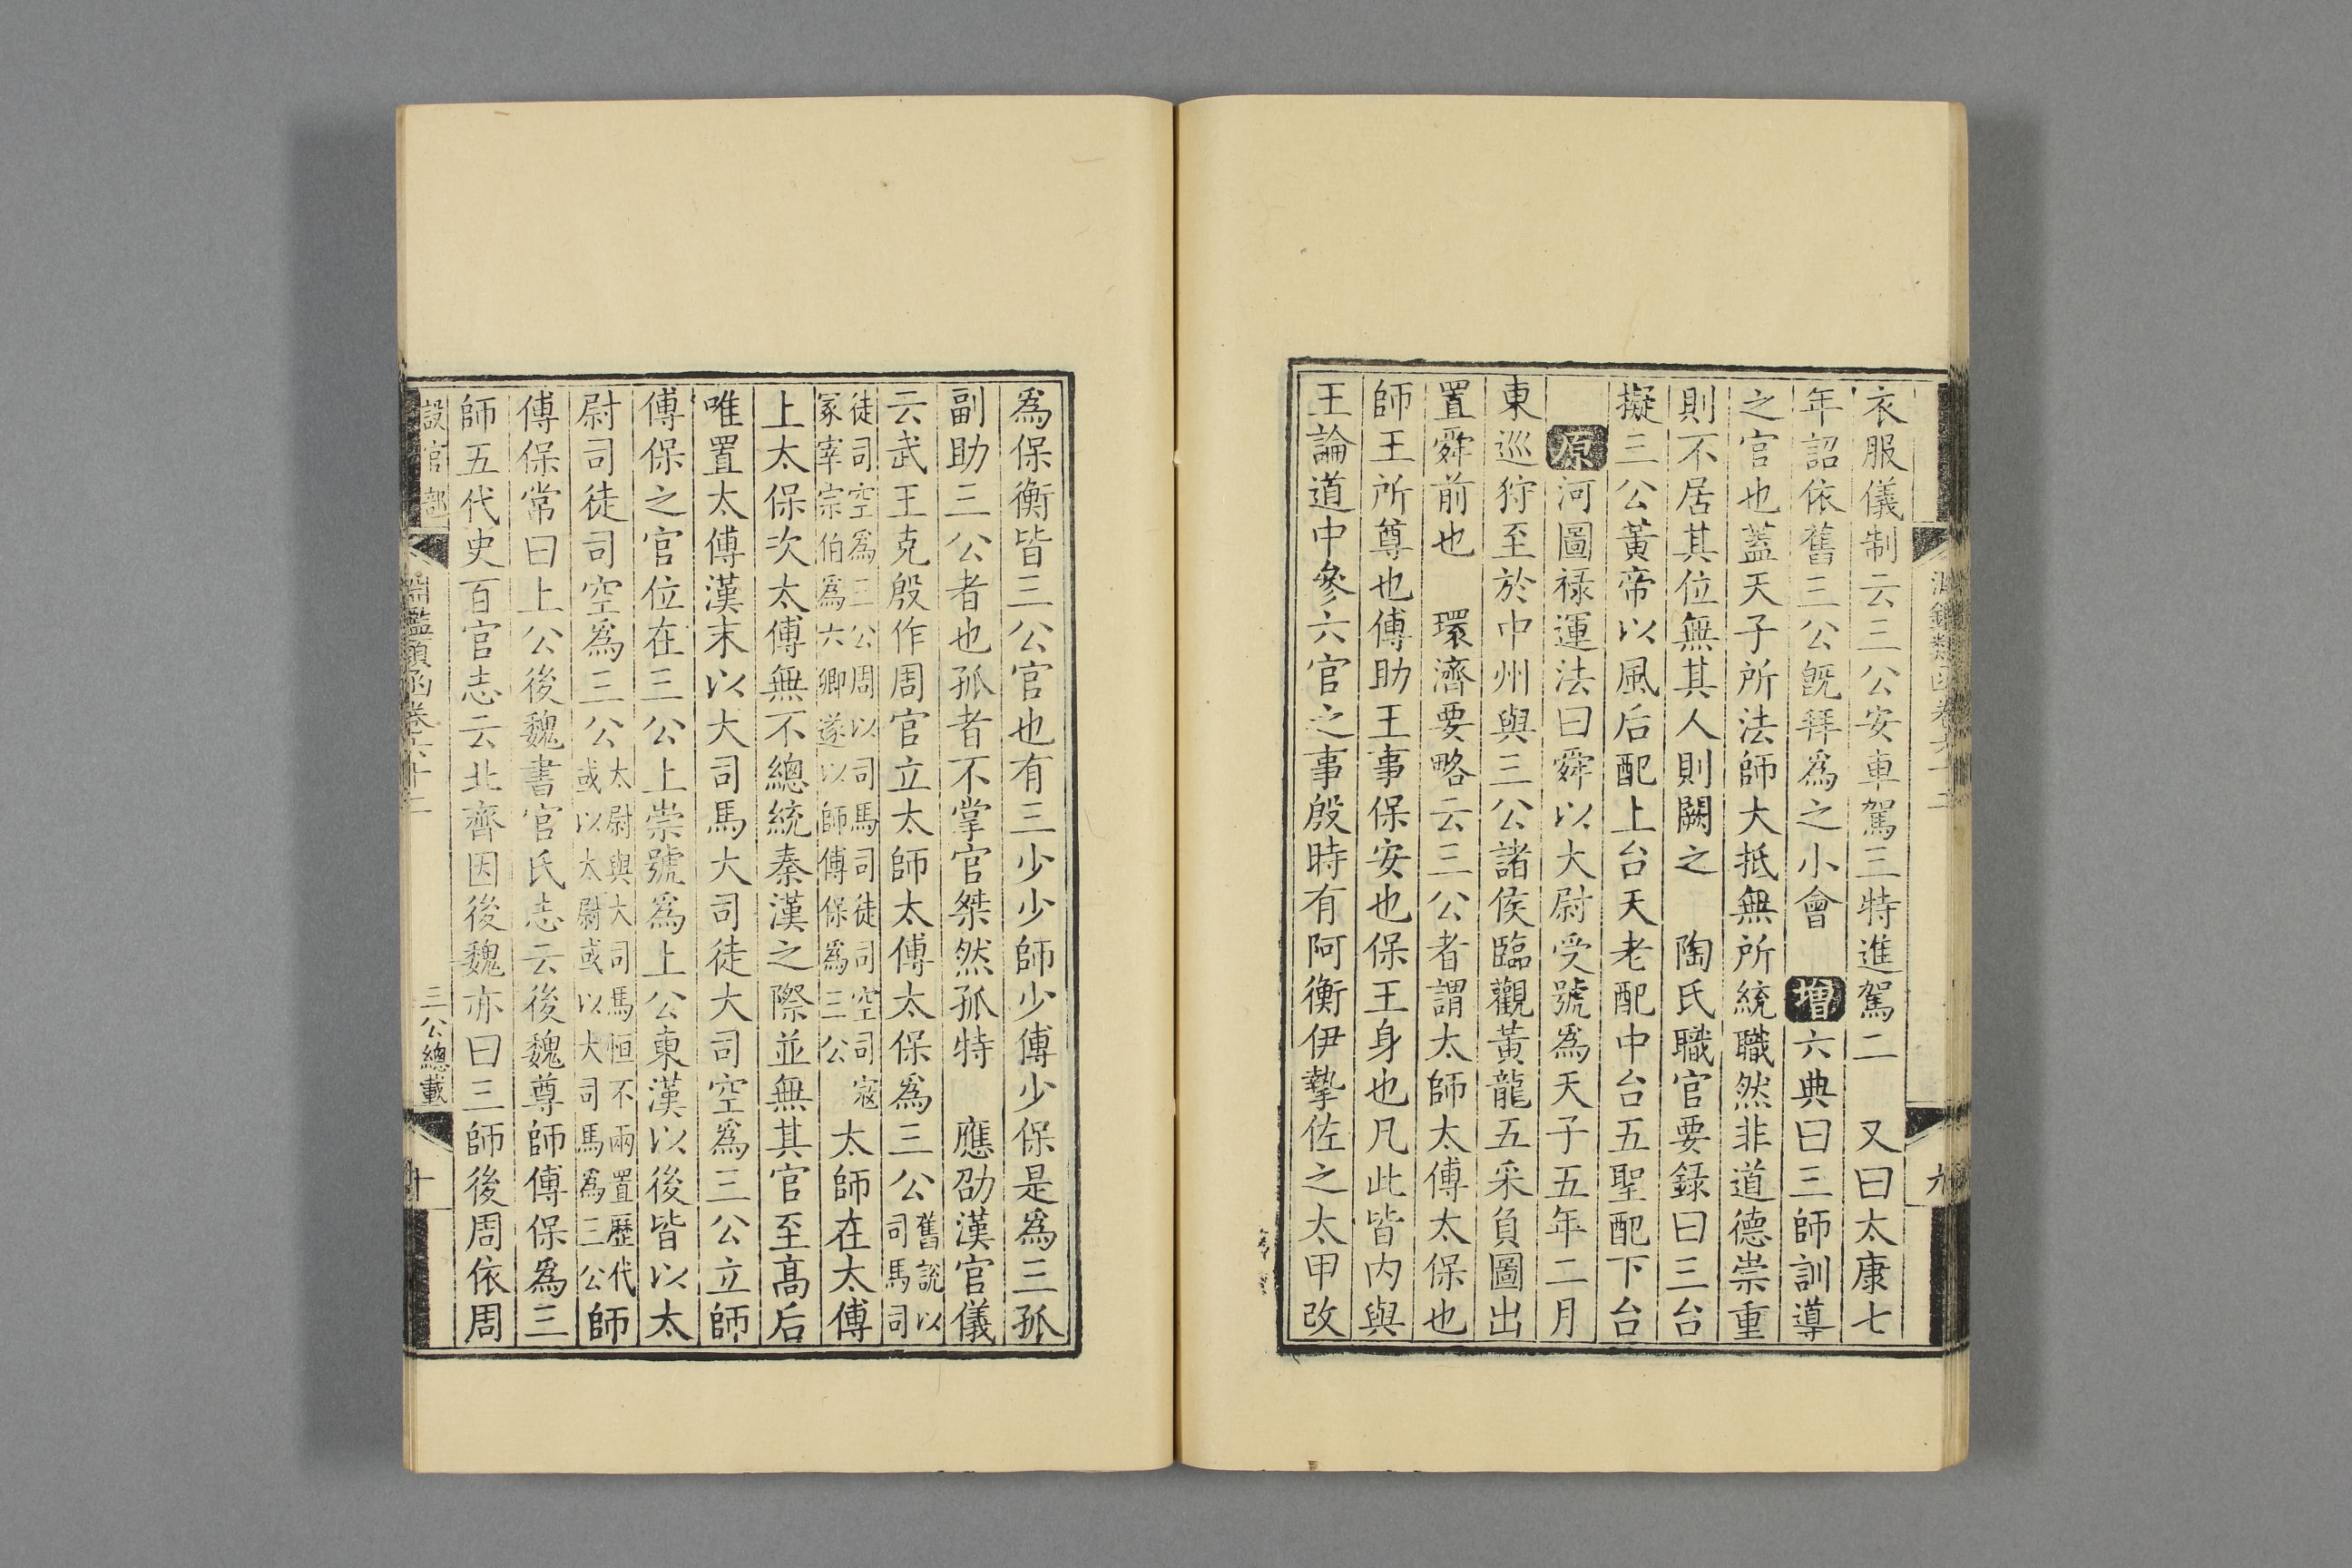 衣服儀制云三公安車駕三特進駕二　又曰太康七
年詔依舊三公旣拜爲之小會　增六典曰三師訓導
之官也蓋天子所法師大抵無所統職然非道德崇重
則不居其位無其人則闕之　陶氏職官要録曰三台
擬三公黃帝以風后配上台天老配中台五聖配下台
原河圖禄運法曰舜以大尉受號爲天子五年二月
東巡狩至於中州與三公諸侯臨觀黃龍五采負圖出
置舜前也　環濟要略云三公者謂太師太傅太保也
師王所尊也傅助王事保安也保王身也凡此皆内與
王論道中參六官之事殷時有阿衡伊摯佐之太甲改
九
爲保衡皆三公官也有三少少師少傅少保是爲三孤
副助三公者也孤者不掌官桀然孤特　應劭漢官儀
云武王克殷作周官立太師太傅太保爲三公舊說以司馬司
徒司空爲三公周以司馬司徒司空司寇冢宰宗伯爲六卿遂以師傅保爲三公太師在太傅
上太保次太傅無不總統秦漢之際並無其官至高后
唯置太傅漢末以大司馬大司徒大司空爲三公立師
傅保之官位在三公上崇號爲上公東漢以後皆以太
尉司徒司空爲三公太尉與大司馬恒不兩置歷代或以太尉或以大司馬爲三公師
傅保常曰上公後魏書官氏志云後魏尊師傅保爲三
師五代史百官志云北齊因後魏亦曰三師後周依周
設官部
淵鑑類函卷六十二
三公總載
十